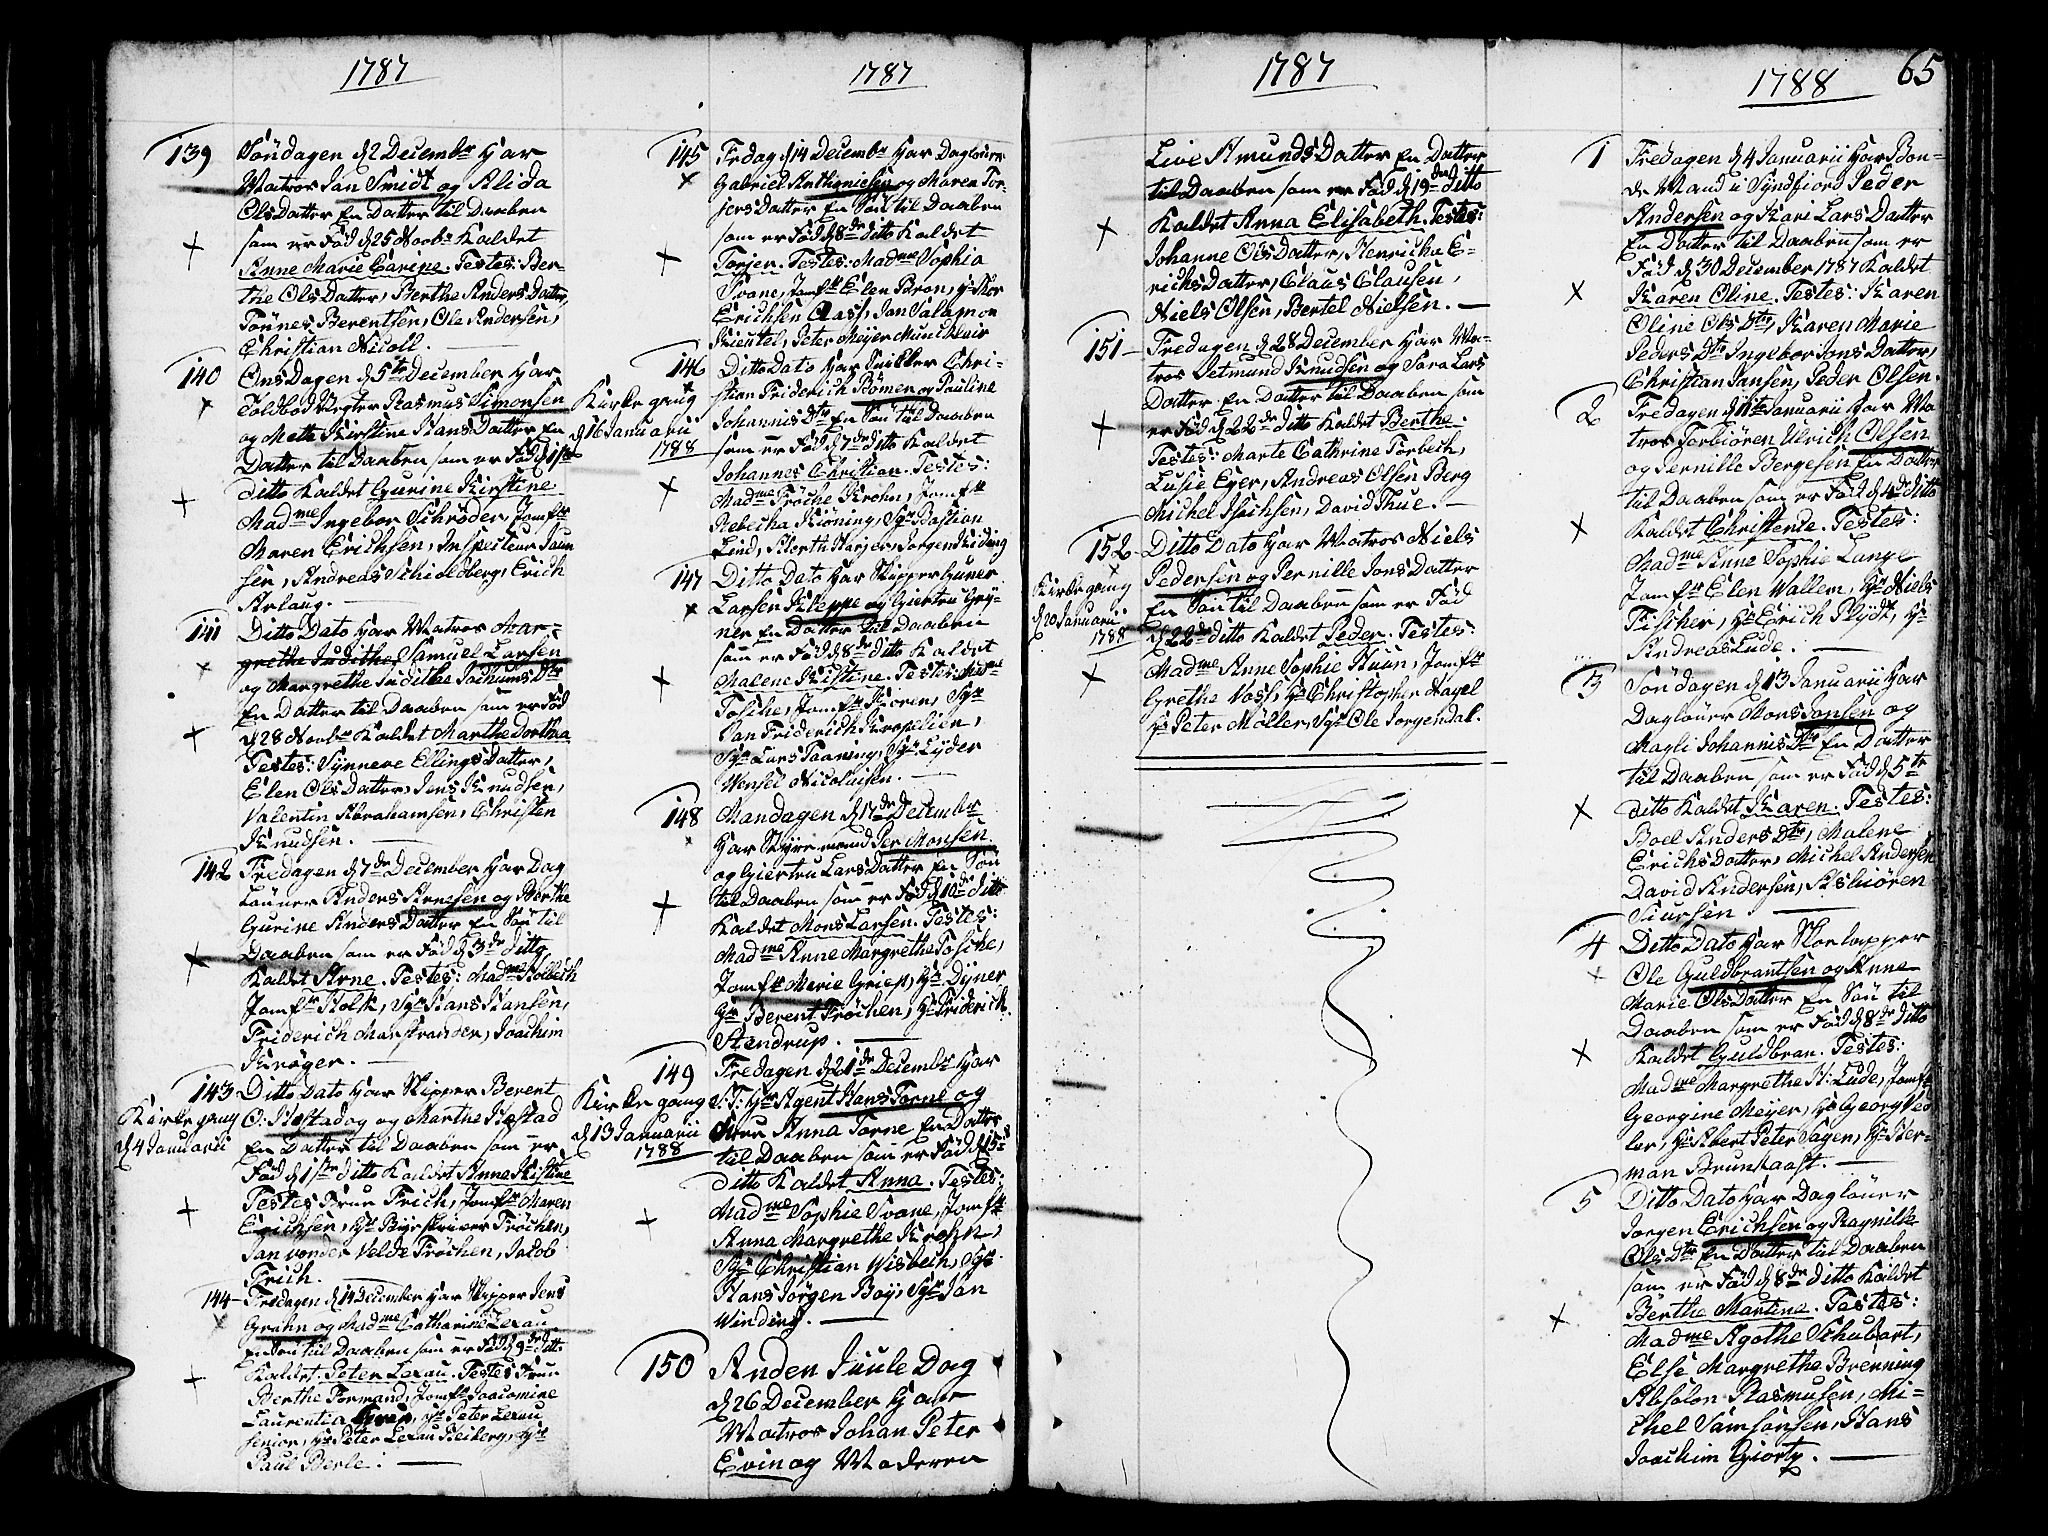 1787
139
Søndagen d 2 Decembr Har
Matros Jan Smidt og Alida
Ols Datter En Datter til Daaben
som er Fød d 25 Novbr Kaldet
Anne Marie Carine. Testes: Ber-
the Ols Datter, Berthe Anders Datter,
Tønnes Berentsen, Ole Andersen,
Christian Nicoll.
140
Ons Dagen d 5te December Har
Toldbod Vegter Rasmus Simonsen
og Mette Kirstine Hans Datter En
Datter til Daaben som er Fød d 1ste
ditto Kaldet Gurine Kirstine
Madme Ingebor Schrøder, Jomfr
Maren Erichsen, Inspecteur Jaun
sen, Andreas Schieldberg, Erich
Arlaug.
141
Ditto Dato Har Matros Mar-
grethe Judithe, Samuel Larsen
og Margrethe Judithe Jochums Dtr
En Datter til Daaben som er Fød
d 28 Novbr Kaldet Marthe Dorthea
Testes: Synneve Ellings Datter,
Elen Ols Datter, Jens Knudsen,
Valentin Abrahamsen, Christen
Knudsen.
142
Fredagen d 7de December Har Dag
Løuner Anders Arnesen og Berthe
Gurine Anders Datter En Søn til
Daaben som er Fød d 3de ditto
Kaldet Arne. Testes: Madme Kolbeth
Jomfr Holk, Sr Hans Hansen,
Friderich Marstrander, Joachim
Krøger.
143
Kirkegang
d 4 Januarii
Ditto Dato Har Skipper Berent
O: Hestad og og Marthe Hestad
En Datter til Daaben som er
Fød d 1ste ditto Kaldet Anne Kistine
Testes Frue Frich, Jomfr Maren
Erichsen, Hr Byeskriver Frøchen,
Jan vonder Velde Frøchen, Jakob
Frich.
144
Fredagen d 14 December Har Skipper Jens
Grahn og Madme Catharine Lexau
En Søn til Daaben som er Fød d 9de ditto
Kaldet Peter Lexau. Testes Frue
Berthe Formand, Jomfr Joacomine
Laurentia, Hr Peter Lexau
senior, Hr Peter Lexau Heiberg, Hr
Paul Berle.
1787
145
Fredag d 14 Decembr Har Dagløuer
Gabriel Anthoniesen og Maren Tor-
jers Datter En Søn til Daaben
som er Fød d 8de ditto Kaldet
Torjen. Testes: Madme Sophia
Svane, Jomfr Elen Børon, Hr Kor
Erichsen Aass, Jan Salamon
Kieutel, Peter Meyer Munchlair
146
Kirkegang
d 16 Januarii
1788
Ditto Dato Har Snikker Chri-
stian Friderich Bømer og Pauline
Johannis Dtr En Søn til Daaben
som er Fød d 7de ditto Kaldet
Johannes Christian. Testes:
Madme Frøche Krohn, Jomfr
Rebecha Kröning, Sr Bastian
Lind, Albert Harjer, Jørgen Kiding
147
Ditto Dato Har Skipper Guner
Larsen Kleppe og Giertru Gry-
ner En Datter til Daaben
som er Fød d 8de ditto Kaldet
Malene Kistine. Testes: Madme
Tosche, Jomfr Kioren, Sr
Jan Friderich Kornelien,
Sr Lars Taaning, Sr Lyder
Wensel Nicolaisen.
148
Mandagen d 17de December
Har Styremand Per Monsen
og Giertru Lars Datter En Søn
til Daaben som er Fød d 10de ditto
Kaldet Mons Larsen. Testes:
Madme Anne Margrethe Foske,
Jomfr Marie Grief, Hr Dyner
Hr Berent Frøchen, Hr Friderich
Stendrup.
149
Kirkegang
d 13 Januarii
1788
Fredagen d 21de Decembr Har
S: T: Hr Agent Hans Torne og
Frue Anna Torne En Datter
til Daaben som er Fød d 15de
ditto Kaldet Anna. Testes:
Madme Sophie Svane, Jomfr
Anna Margrethe Krohn,
Sr Christian Wisbech, Sr
Hans Jörgen Boy, Sr Jan
Winding.
150
Anden Juule Dag
d 26 December Har
Matros Johan Peter
Evin og Moderen
1787
Live Amunds Datter En Datter
til Daaben som er Fød d 19de ditto
Kaldet Anna Elisabeth. Testes:
Johanne Ols Datter, Henricha E-
richs Datter, Claus Clausen,
Niels Olsen, Bertel Nielsen.
151
Fredagen d 28 December Har Ma-
tros Detmund Knudsen og Sara Lars
Datter En Datter til Daaben som
er Fød d 22de ditto Kaldet Berthe.
Testes: Marte Cathrine Forbech,
Lusie Eger, Andreas Olsen Berg
Michel Isachsen, David Thue.
152
Kirkegang
d 20 Januarii
1788
Ditto Dato Har Matros Niels
Pedersen og Pernille Jons Datter
En Søn til Daaben som er Fød
d 22de ditto Kaldet Peder. Testes:
Madme Anne Sophie Huun, Jomfr
Grethe Voss, Hr Christopher Nagel
Hr Peter Möller, Sr Ole Jorgendal.
65
1788
1
Fredagen d 4 Januarii Har Bon-
de Mand i Syndfiord Peder
Andersen og Kari Lars Datter
En Datter til Daaben som er
Fød d 30 December 1787 Kaldet
Karen Oline. Testes: Karen
Oline Ols Dtr, Karen Marie
Peders Dtr Ingebor Jons Datter,
Christian Jansen, Peder Olsen.
2
Fredagen d 11te Januarii Har Ma
tros Torbiören Ulrich Olsen
og Pernille Bergesen En Datter
til Daaben som er Fød d 4de ditto
Kaldet Christende. Testes:
Madme Anne Sophie Lange
Jomfr Elen Wallem, Hr Niels
Fischer, Hr Erich Plydt, Hr
Andreas Lude.
3
Søndagen d 13 Januarii Har
Dagløuer Mons Jonsen og
Magli Johannis Dtr En Datter
til Daaben som er Fød d 5te
ditto Kaldet Karen. Testes:
Boel Anders Dtr, Malene
Erichs Datter, Michel Andersen
David Andersen, Asbiören
Siursen
4
Ditto Dato Har Skoelapper
Ole Guldbrantsen og Anne
Marie Ols Datter En Søn til
Daaben som er Fød d 8de ditto
Kaldet Guldbran. Testes:
Madme Margrethe H: Lude, Jomfr
Georgine Meyer, Hr Georg Ved
ler, Hr Albert Peter Sagen, Hr Her-
man Brunkaast.
5
Ditto Dato Har Dagløuer
Jorgen Erichsen og Ragnille
Ols Dtr En Datter til Daaben
som er Fød d 8de ditto Kaldet
Berthe Martine. Testes:
Madme Agothe Schubart,
Else Margrethe Brenning
Absolon Rasmusen, Mi-
chel Samsonsen, Hans
Joachim Giörtz.